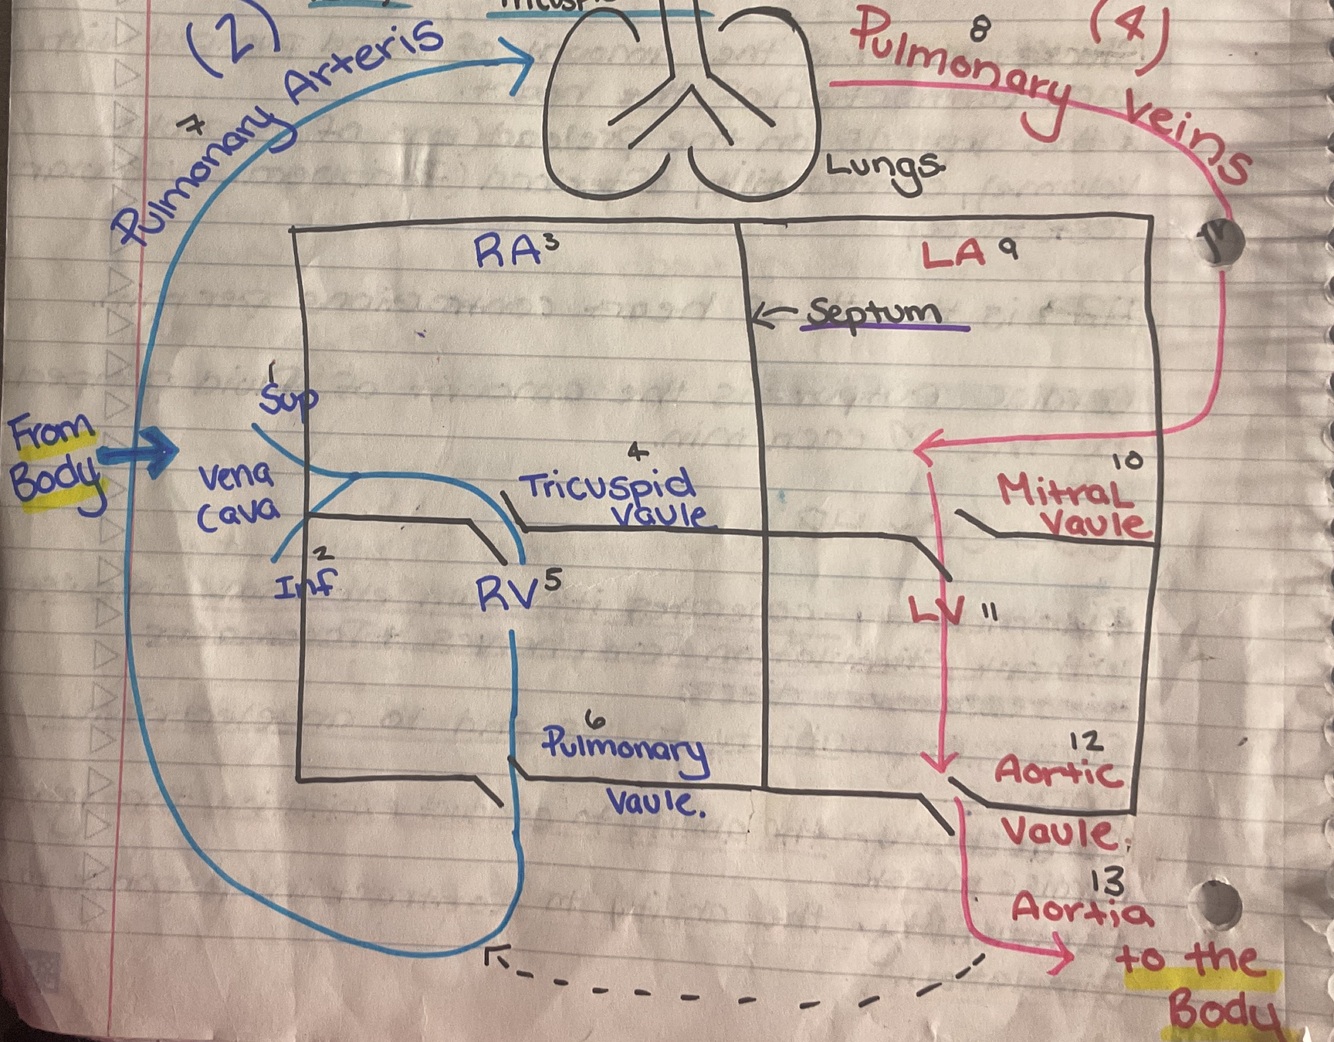 Tricuspid
(2)
Pulmonary Arteris
7
Pulmonary veins
8
(4)
Lungs
RA 3
LA 9
← Septum
1
Sup
From
Body
Vena
Cava
2
Inf
4
Tricuspid
Vaule
10
Mitral
Vaule
RV 5
LV 11
6
Pulmonary
Vaule.
12
Aortic
Vaule.
13
Aortia
to the
Body